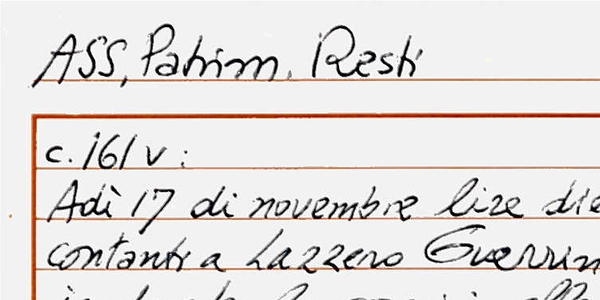 ASS, Patrim. Resti
c. 161 v:
Adì 17 di novembre lire die
contanti a Lazzero Guerrin